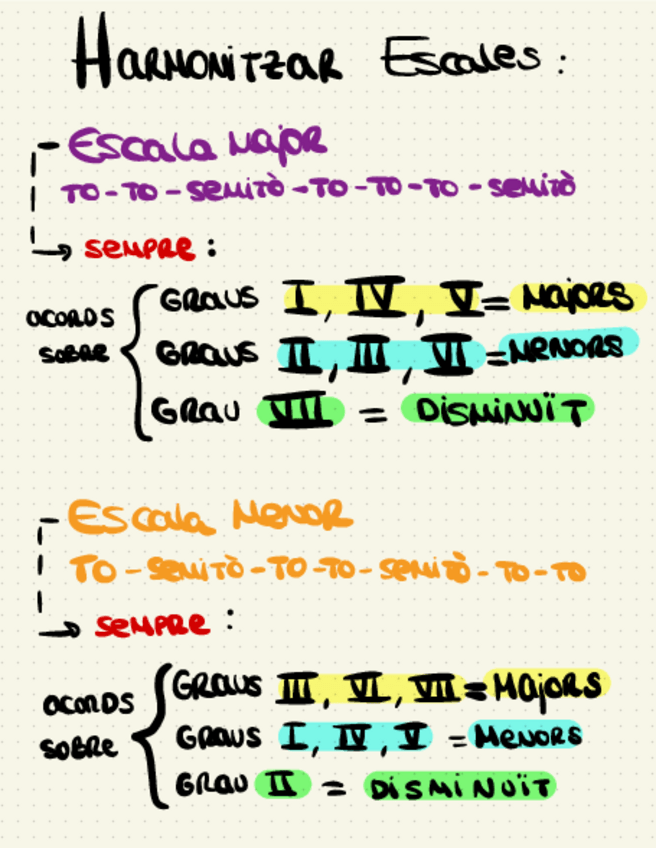 HARMONITZAR ESCALES:
- ESCALA MAJOR
TO-TO-SEMITÒ-TO-TO-TO-SEMITÒ
SEMPRE:
ACORDS SOBRE
GRAUS I, IV, V = MAJORS
GRAUS II, III, VI = MENORS
GRAU VII = DISMINUÏT
- ESCALA MENOR
TO-SEMITÒ-TO-TO-SEMITÒ-TO-TO
SEMPRE:
ACORDS SOBRE
GRAUS III, VI, VII = MAJORS
GRAUS I, IV, V = MENORS
GRAU II = DISMINUÏT